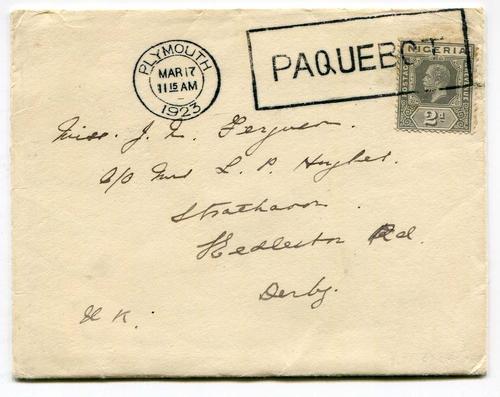 PLYMOUTH
MAR 17
11 15 AM
1923
PAQUEBOT
NIGERIA
POSTAGE
REVENUE
2d
Miss. J. L. Ferguson.
c/o Mrs L. P. Hughes.
Strathavon.
Kedleston Rd.
Derby.
U K.